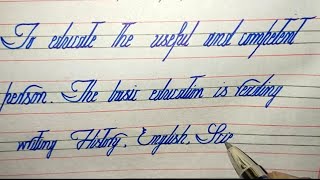 To educate the useful and competent
person. The basic education is reading
writing History, English, Scie